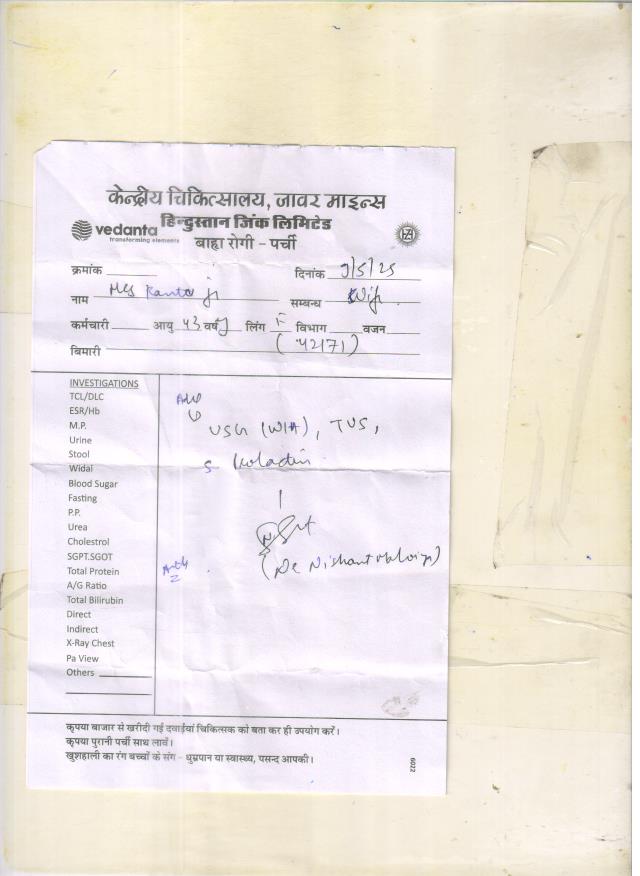 केन्द्रीय चिकित्सालय, जावर माइन्स
हिन्दुस्तान जिंक लिमिटेड
vedanta
transforming elements
बाह्य रोगी - पर्ची
HZL
क्रमांक दिनांक 9/5/25
नाम सम्बन्ध Wife
कर्मचारी आयु 43 वर्ष लिंग F विभाग वजन
बिमारी (42171)
INVESTIGATIONS
TCL/DLC
ESR/Hb
M.P.
Urine
Stool
Widal
Blood Sugar
Fasting
P.P.
Urea
Cholestrol
SGPT.SGOT
Total Protein
A/G Ratio
Total Bilirubin
Direct
Indirect
X-Ray Chest
Pa View
Others
Adv
USG (W/A), TVS,
(Dr Nishant Malviya)
कृपया बाजार से खरीदी गई दवाईयां चिकित्सक को बता कर ही उपयोग करें।
कृपया पुरानी पर्ची साथ लावें।
खुशहाली का रंग बच्चों के संग - धुम्रपान या स्वास्थ्य, पसन्द आपकी।
6022